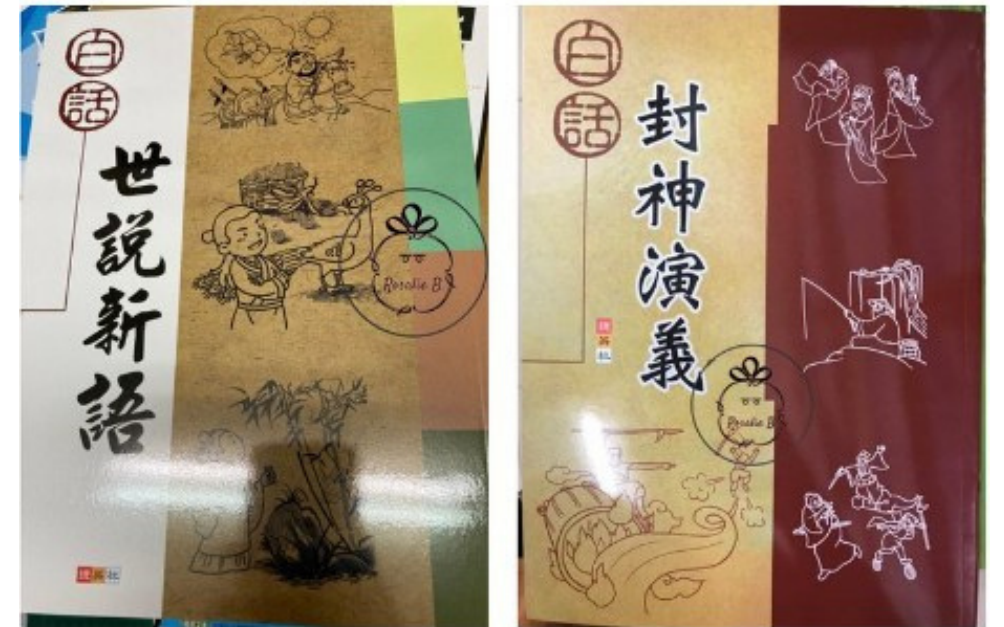 白話
世説新語
Rosalie B
白話
封神演義
Rosalie B